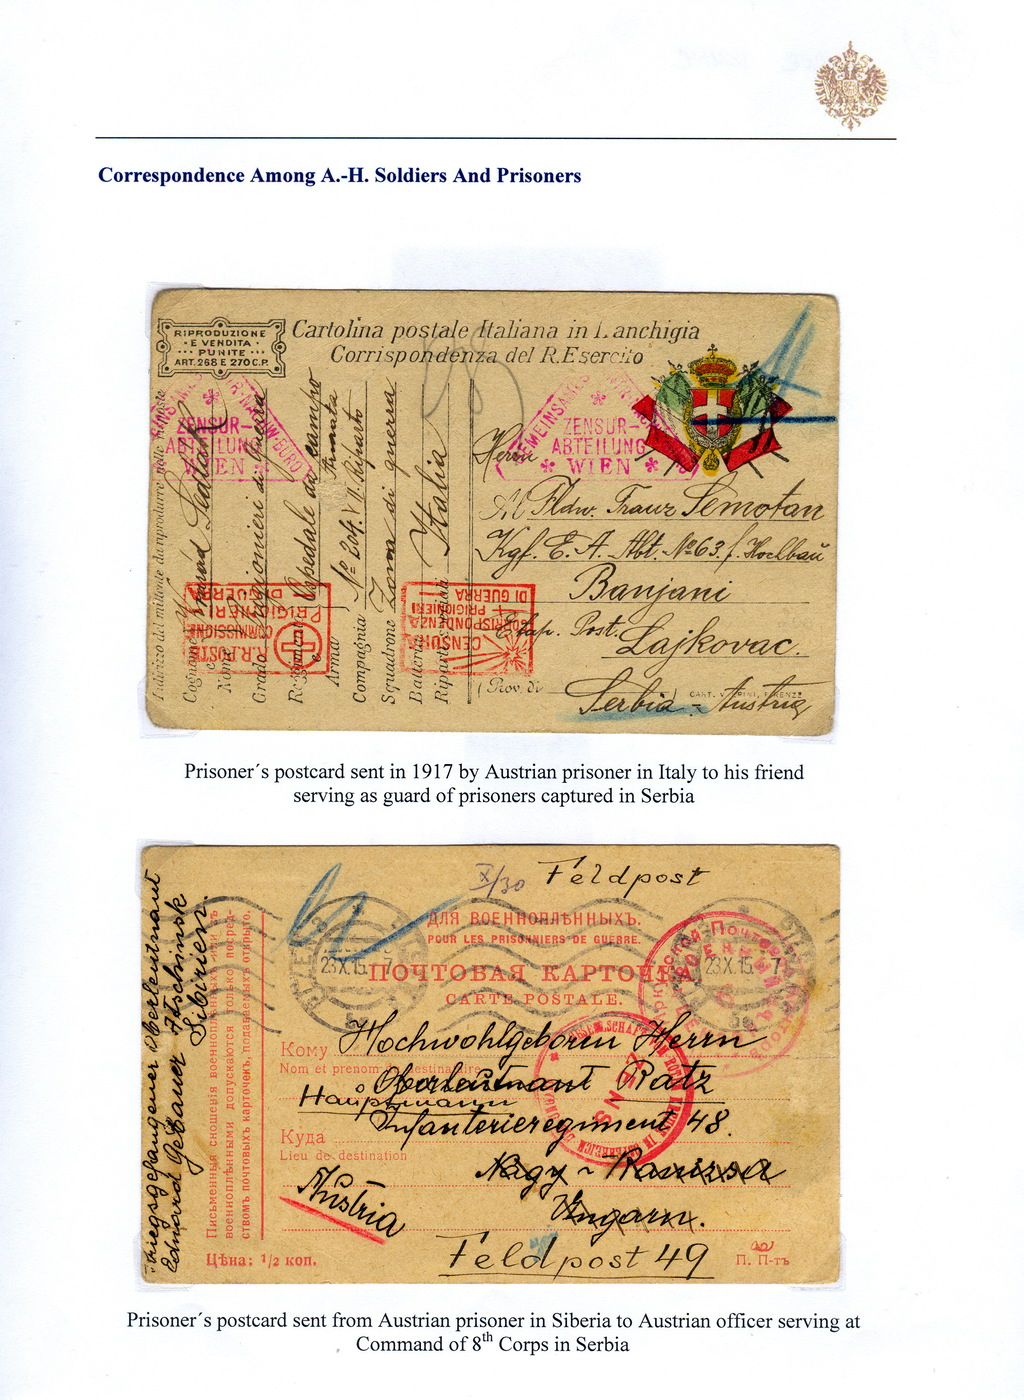 Correspondence Among A.-H. Soldiers And Prisoners
RIPRODUZIONE
E VENDITA
PUNITE
ART. 268 E 270 C.P.
Cartolina postale Italiana in franchigia
Corrispondenza del R. Esercito
ZENSUR-
ABTEILUNG
WIEN
GEMEINSAMES
ZENSUR-
ABTEILUNG
WIEN
Cognome
e
Nome
Grado Prigionieri di Guerra
Reggimento Ospedale da campo
o
Arma
Compagnia No 204. VII. Riparto
Squadrone Zona di guerra
Batteria
Riparti speciali Italia
R.R. POSTE
COMMISSIONE
PRIGIONIERI
DI GUERRA
CENSURA
CORRISPONDENZA
PRIGIONIERI
DI GUERRA
Herrn
Fldw. Franz Semotan
Kgf. E. A. Abt. No 63. f. Hochbau
Banjani
Etap. Post.
Lajkovac.
(Prov. di
Serbia - Austria
Prisoner´s postcard sent in 1917 by Austrian prisoner in Italy to his friend
serving as guard of prisoners captured in Serbia
X/30
Feldpost
ДЛЯ ВОЕННОПЛѢННЫХЪ.
POUR LES PRISONNIERS DE GUERRE.
ПОЧТОВАЯ КАРТОЧКА
CARTE POSTALE.
23.X.15. 7
23.X.15. 7
Кому Hochwohlgeboren Herrn
Nom et prénom du destinataire
Oberleutnant Ratz
Hauptmann
Infanterieregiment 48.
Куда
Lieu de destination
Nagy - Kanizsa
Austria
Ungarn.
Feldpost 49
Цѣна: 1/2 коп.
П. П-тъ
Kriegsgefangener Oberleutnant
Eduard Gebauer Atschinsk
Sibirien.
Письменныя сношенія военноплѣнныхъ или съ
военноплѣнными допускаются только посред-
ствомъ почтовыхъ карточекъ, подаваемыхъ открыто.
ZENS
Prisoner´s postcard sent from Austrian prisoner in Siberia to Austrian officer serving at
Command of 8th Corps in Serbia